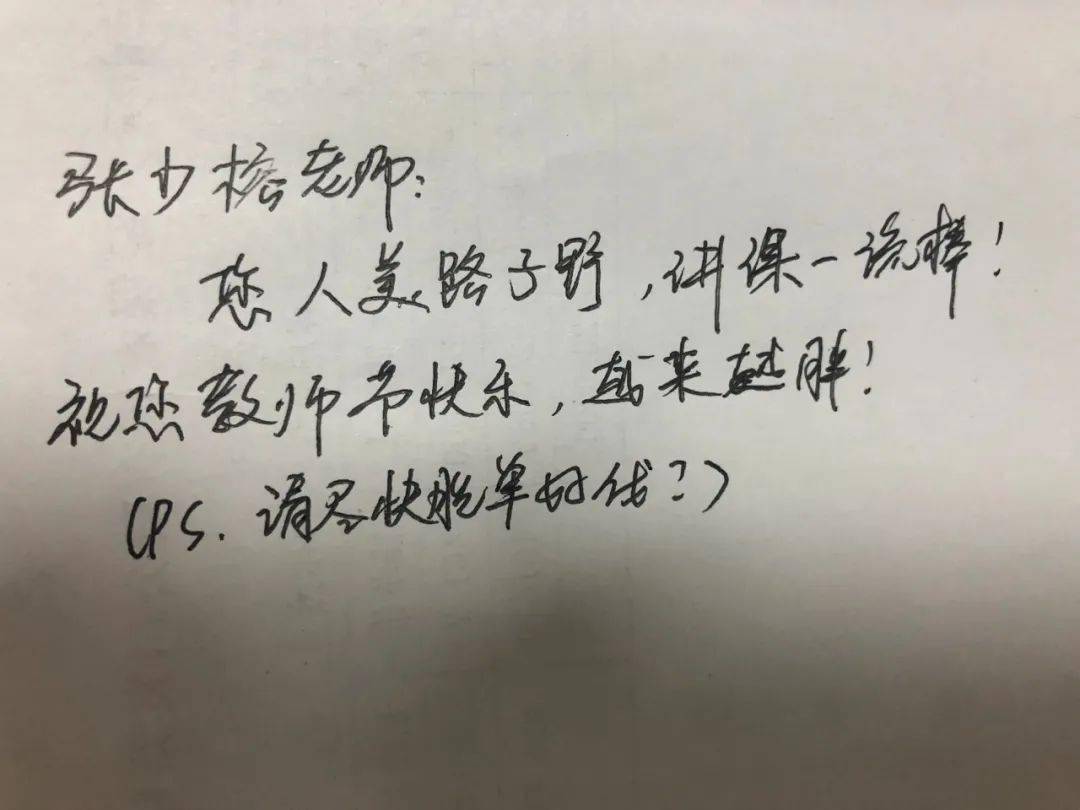 张少榕老师：
您人美路子野，讲课一流棒！
祝您教师节快乐，越来越胖！
（PS. 请尽快脱单好伐？）